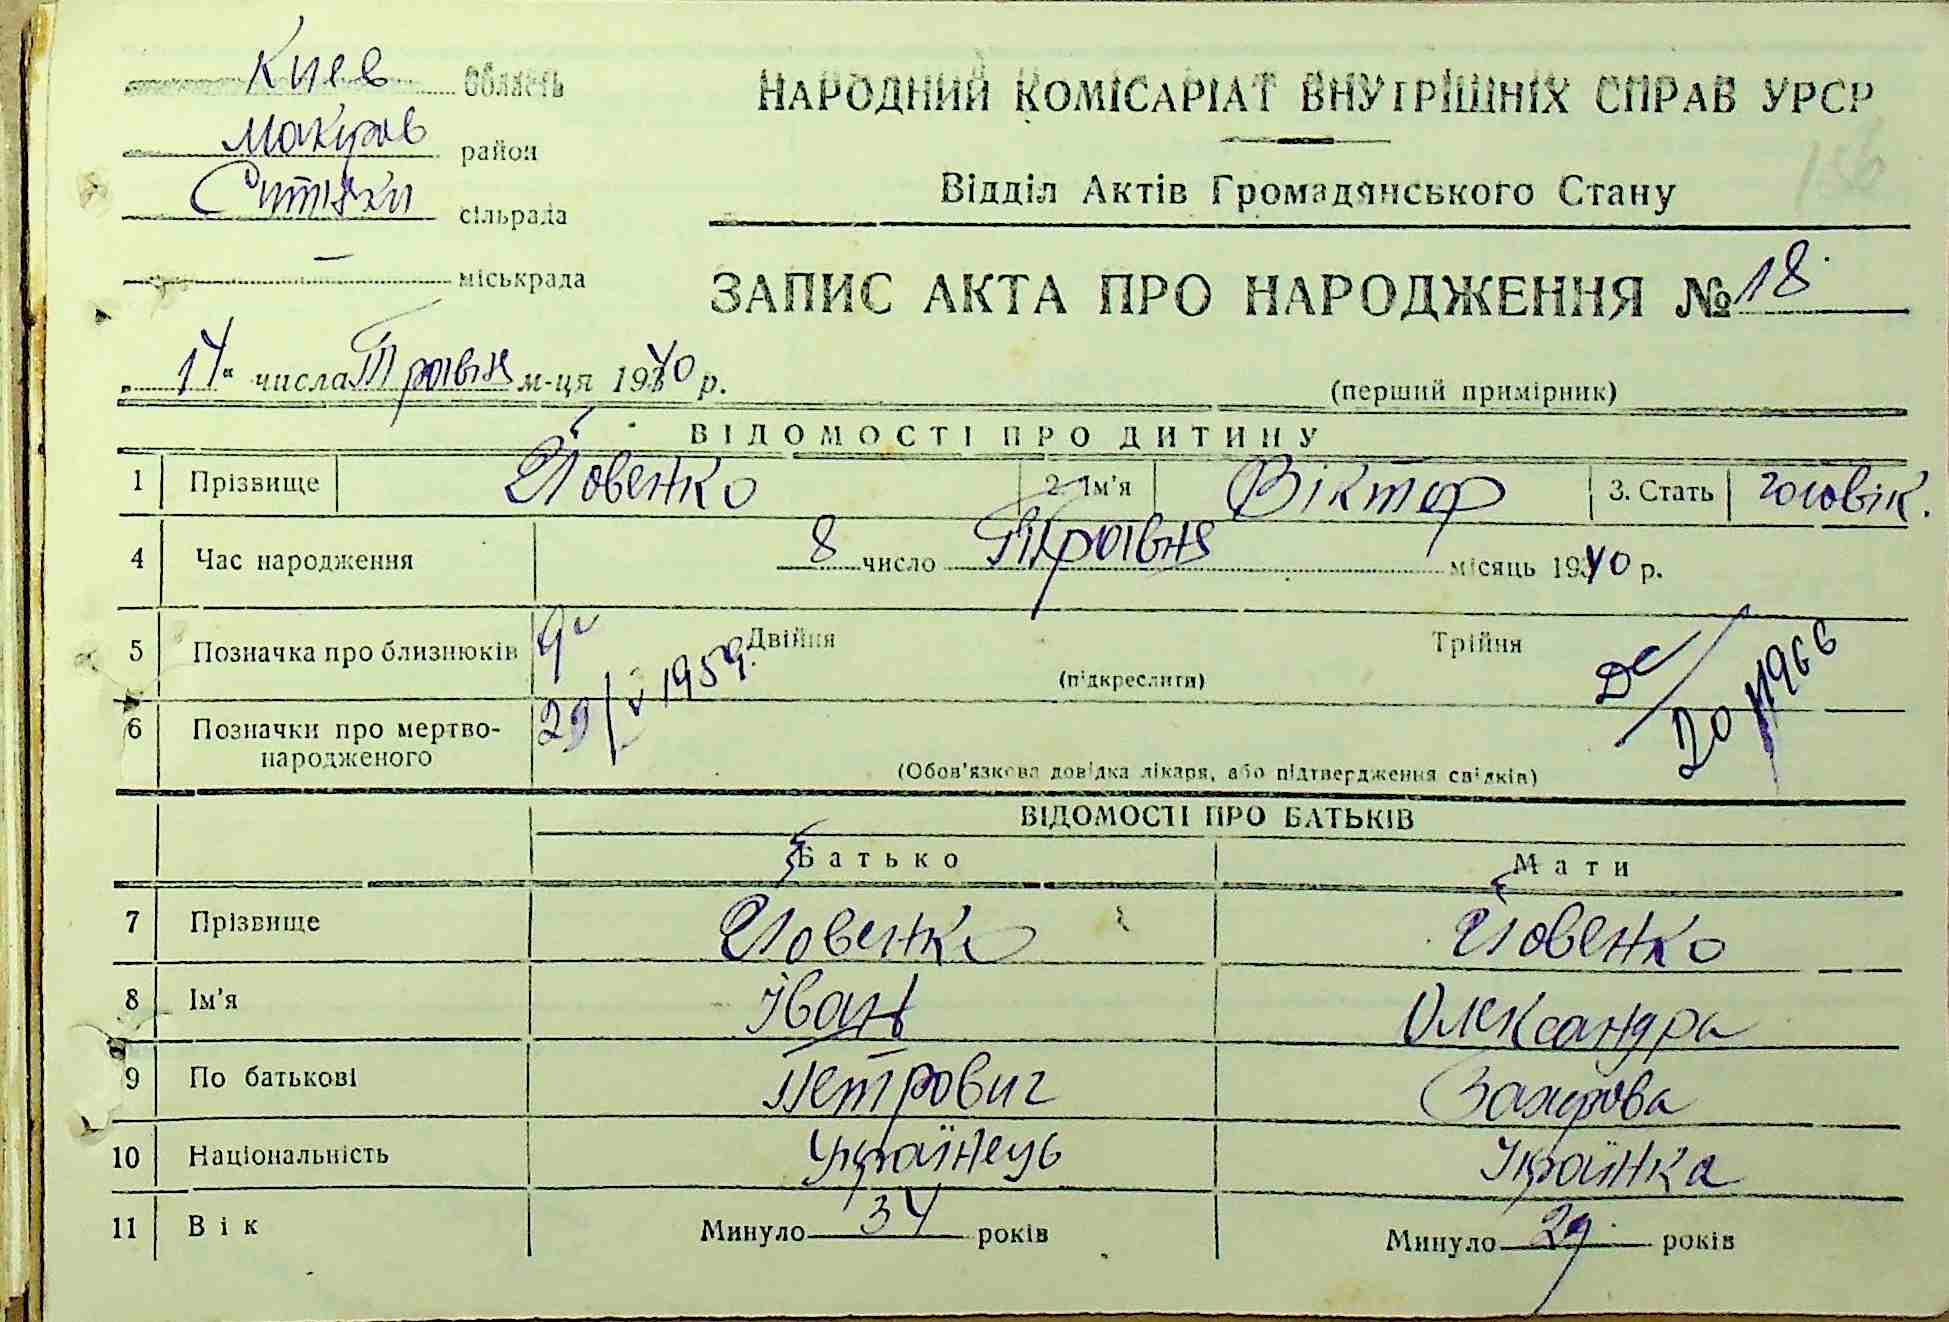 Киев область
Макаров район
Ситняки сільрада
– міськрада
НАРОДНИЙ КОМІСАРІАТ ВНУТРІШНІХ СПРАВ УРСР
156
Відділ Актів Громадянського Стану
ЗАПИС АКТА ПРО НАРОДЖЕННЯ № 18
„14“ числа Травня м-ця 1940 р.
(перший примірник)
ВІДОМОСТІ ПРО ДИТИНУ
1 Прізвище Йовенко 2. Ім'я Віктор 3. Стать чоловік.
4 Час народження 8 число Травня місяць 1940 р.
5 Позначка про близнюків Двійня Трійня
(підкреслити)
29/V 1959.
20 1966
6 Позначки про мертво-
народженого
(Обов'язкова довідка лікаря, або підтвердження свідків)
ВІДОМОСТІ ПРО БАТЬКІВ
Батько Мати
7 Прізвище Йовенко Йовенко
8 Ім'я Іван Олександра
9 По батькові Петрович Захарова
10 Національність Українець Українка
11 Вік Минуло 34 років Минуло 29 років